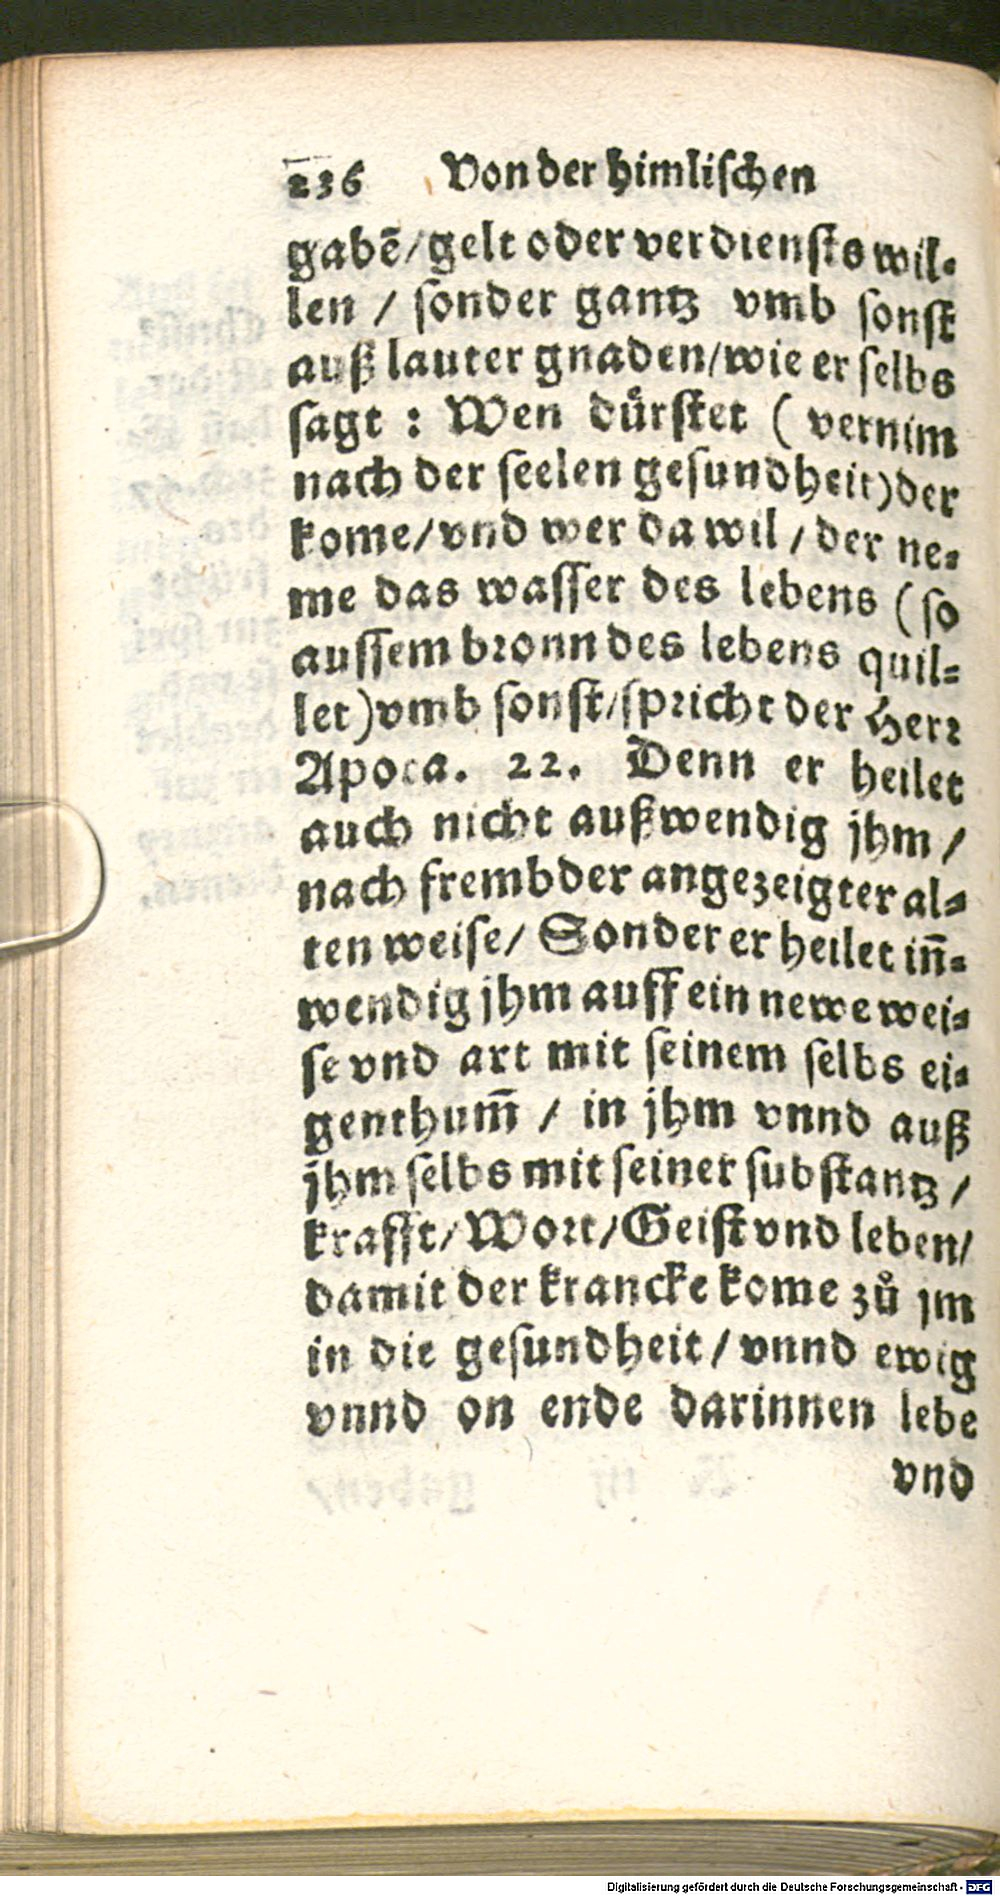 236 Von der himlischen
gabē/gelt oder verdiensts wil-
len / sonder gantz vmb sonst
auß lauter gnaden/wie er selbs
sagt : Wen duͤrstet ( vernim
nach der seelen gesundheit)der
kome/vnd wer da wil / der ne-
me das wasser des lebens (so
aussem bronn des lebens quil-
let)vmb sonst/spricht der Herr
Apoca. 22. Denn er heilet
auch nicht außwendig jhm /
nach frembder angezeigter al-
ten weise/ Sonder er heilet iñ-
wendig jhm auff ein newe wei-
se vnd art mit seinem selbs ei-
genthum̃ / in jhm vnnd auß
jhm selbs mit seiner substantz /
krafft/Wort/Geist vnd leben/
damit der krancke kome zů jm
in die gesundheit/vnnd ewig
vnnd on ende darinnen lebe
vnd
Digitalisierung gefördert durch die Deutsche Forschungsgemeinschaft - DFG